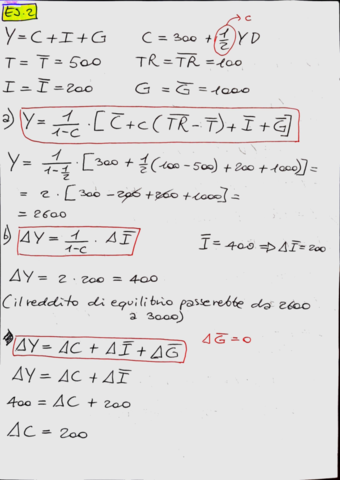 ES. 2
Y = C + I + G    C = 300 + 1/2 YD    → c
T = T̅ = 500    TR = T̅R̅ = 100
I = I̅ = 200    G = G̅ = 1000
a) Y = 1/(1-c) · [C̅ + c (T̅R̅ - T̅) + I̅ + G̅]
Y = 1/(1-1/2) · [300 + 1/2 (100 - 500) + 200 + 1000] =
= 2 · [300 - 200 + 200 + 1000] =
= 2600
b) ΔY = 1/(1-c) · ΔI̅    I̅ = 400 ⇒ ΔI̅ = 200
ΔY = 2 · 200 = 400
(il reddito di equilibrio passerebbe da 2600
a 3000)
ΔY = ΔC + ΔI̅ + ΔG̅    ΔG̅ = 0
ΔY = ΔC + ΔI̅
400 = ΔC + 200
ΔC = 200